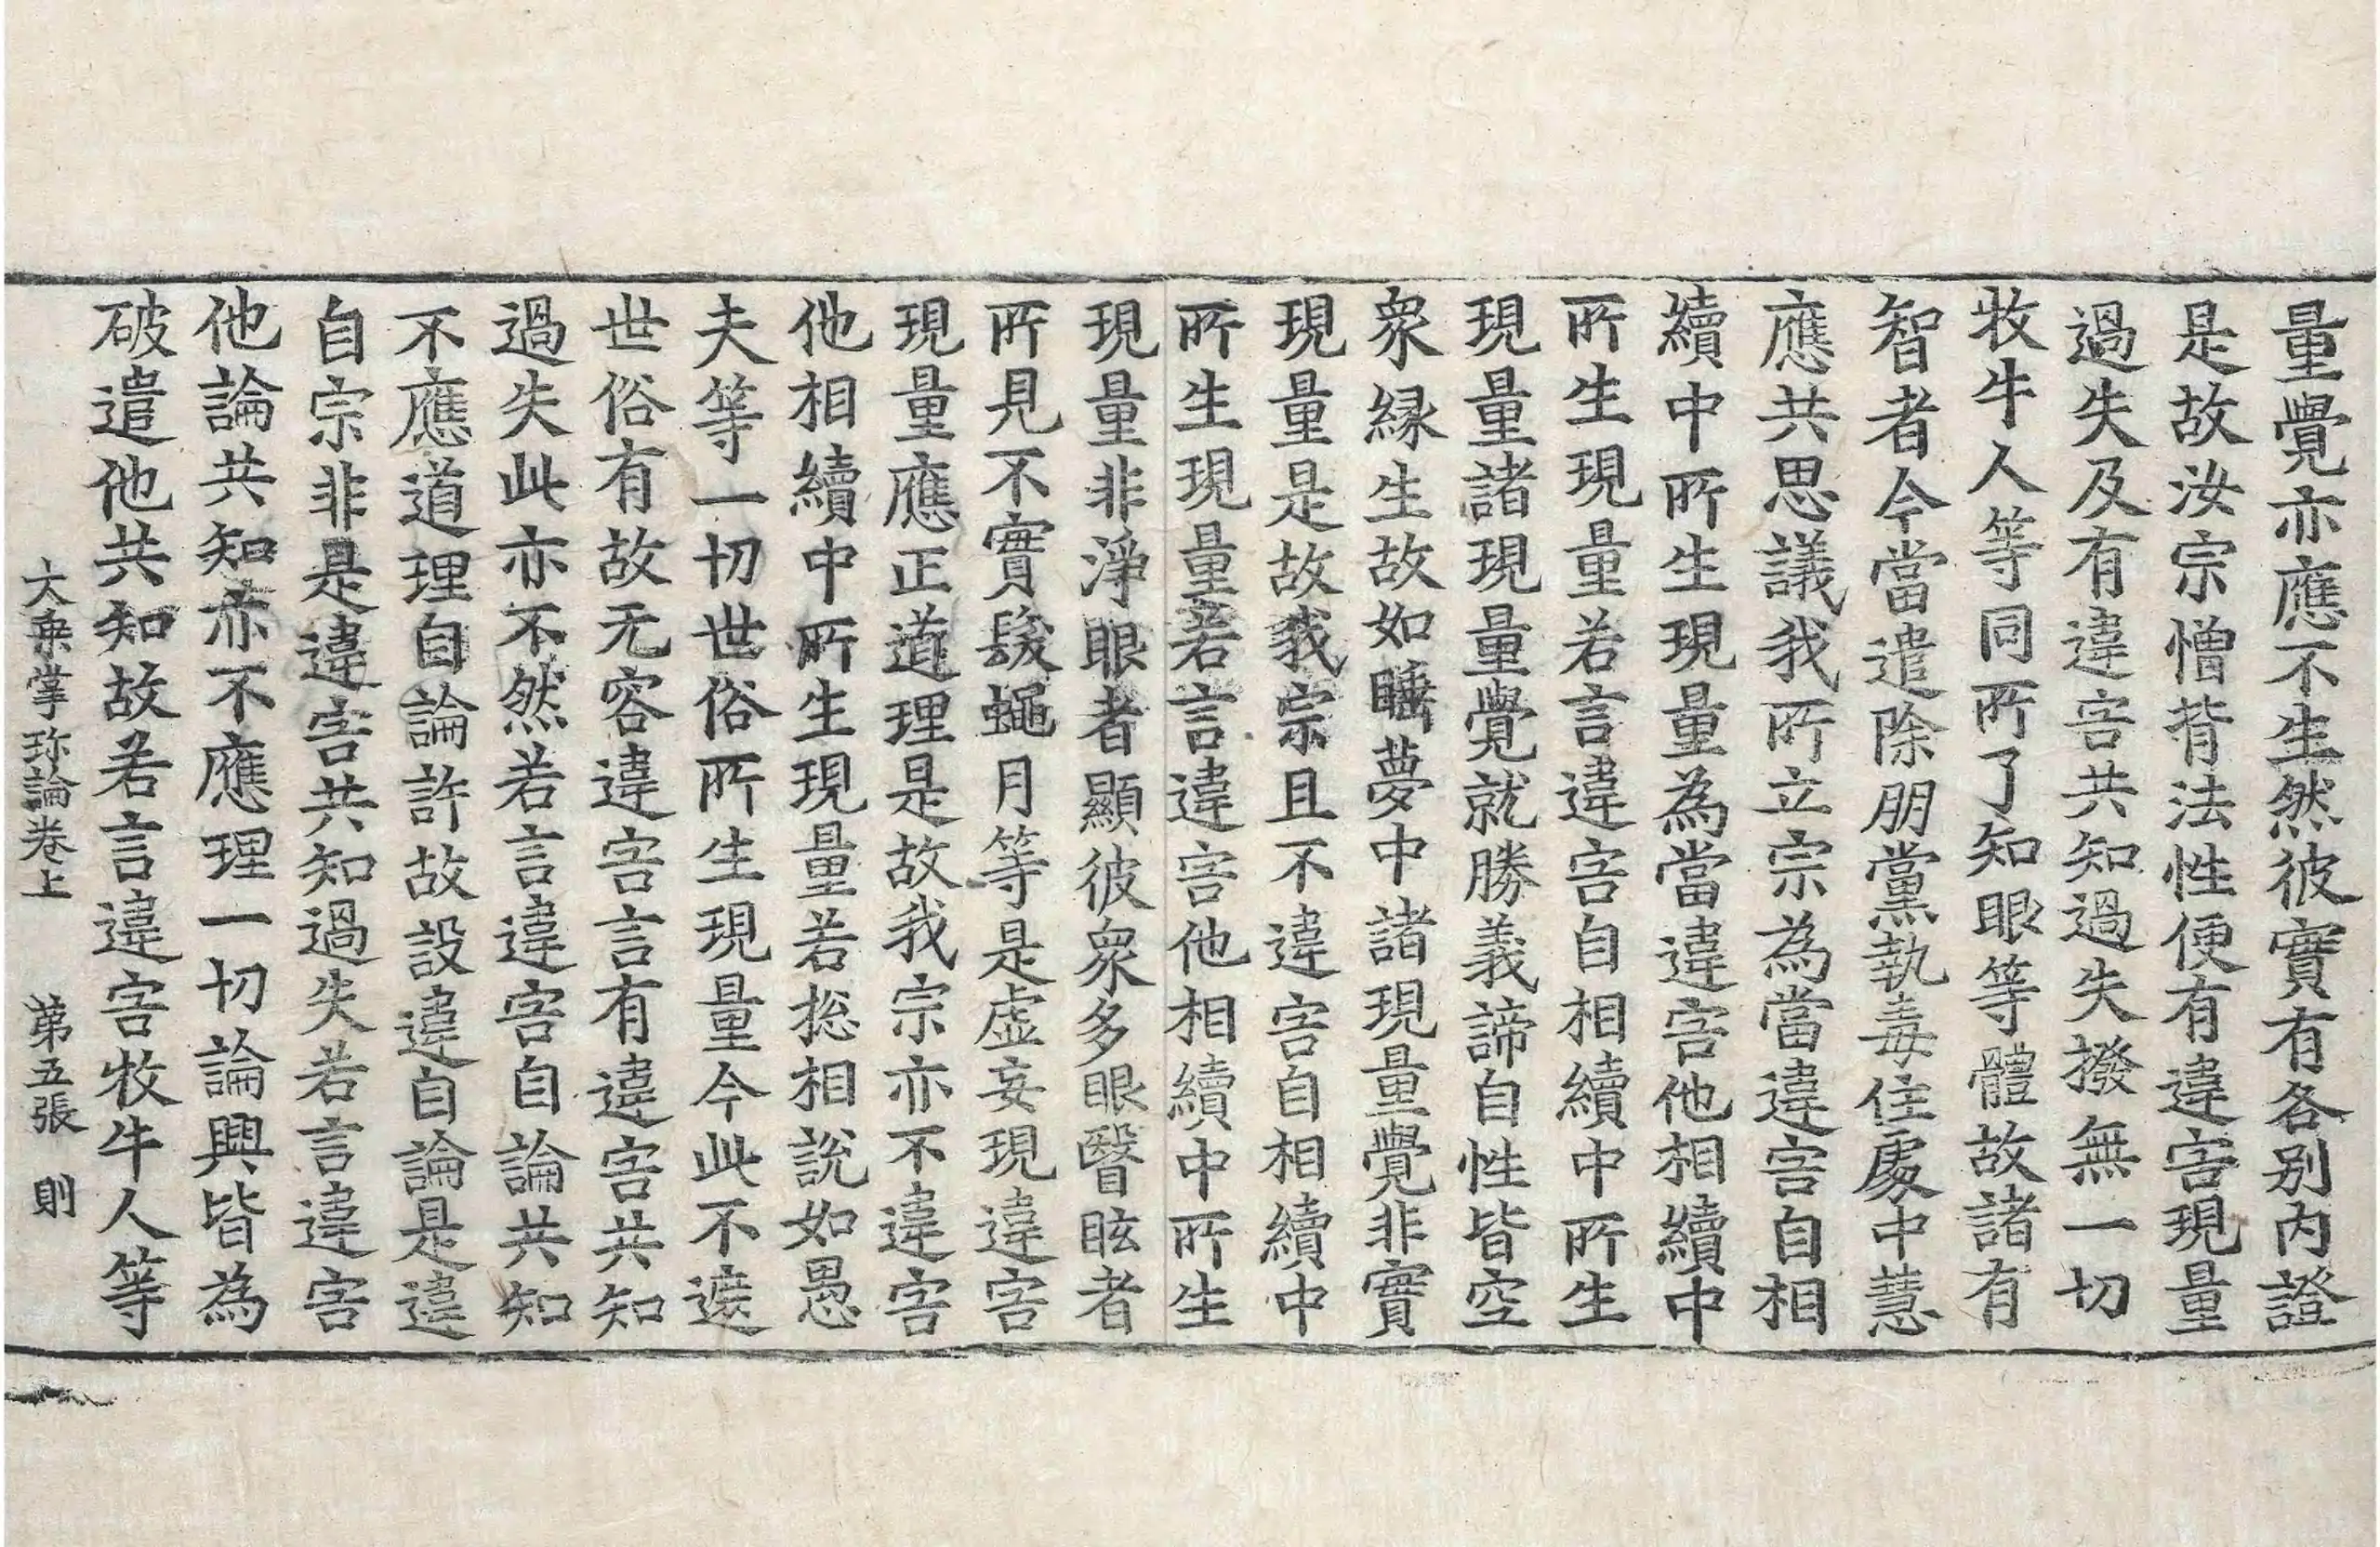 量覺亦應不生然彼實有各別內證
是故汝宗憎背法性便有違害現量
過失及有違害共知過失撥無一切
牧牛人等同所了知眼等體故諸有
智者今當遣除朋黨執毒住處中慧
應共思議我所立宗為當違害自相
續中所生現量為當違害他相續中
所生現量若言違害自相續中所生
現量諸現量覺就勝義諦自性皆空
眾緣生故如睡夢中諸現量覺非實
現量是故我宗且不違害自相續中
所生現量若言違害他相續中所生
現量非淨眼者顯彼眾多眼瞖眩者
所見不實髮蠅月等是虛妄現違害
現量應正道理是故我宗亦不違害
他相續中所生現量若捴相說如愚
夫等一切世俗所生現量今此不遮
世俗有故无容違害言有違害共知
過失此亦不然若言違害自論共知
不應道理自論許故設違自論是違
自宗非是違害共知過失若言違害
他論共知亦不應理一切論興皆為
破遣他共知故若言違害牧牛人等
大乗掌珎論卷上 第五張 則